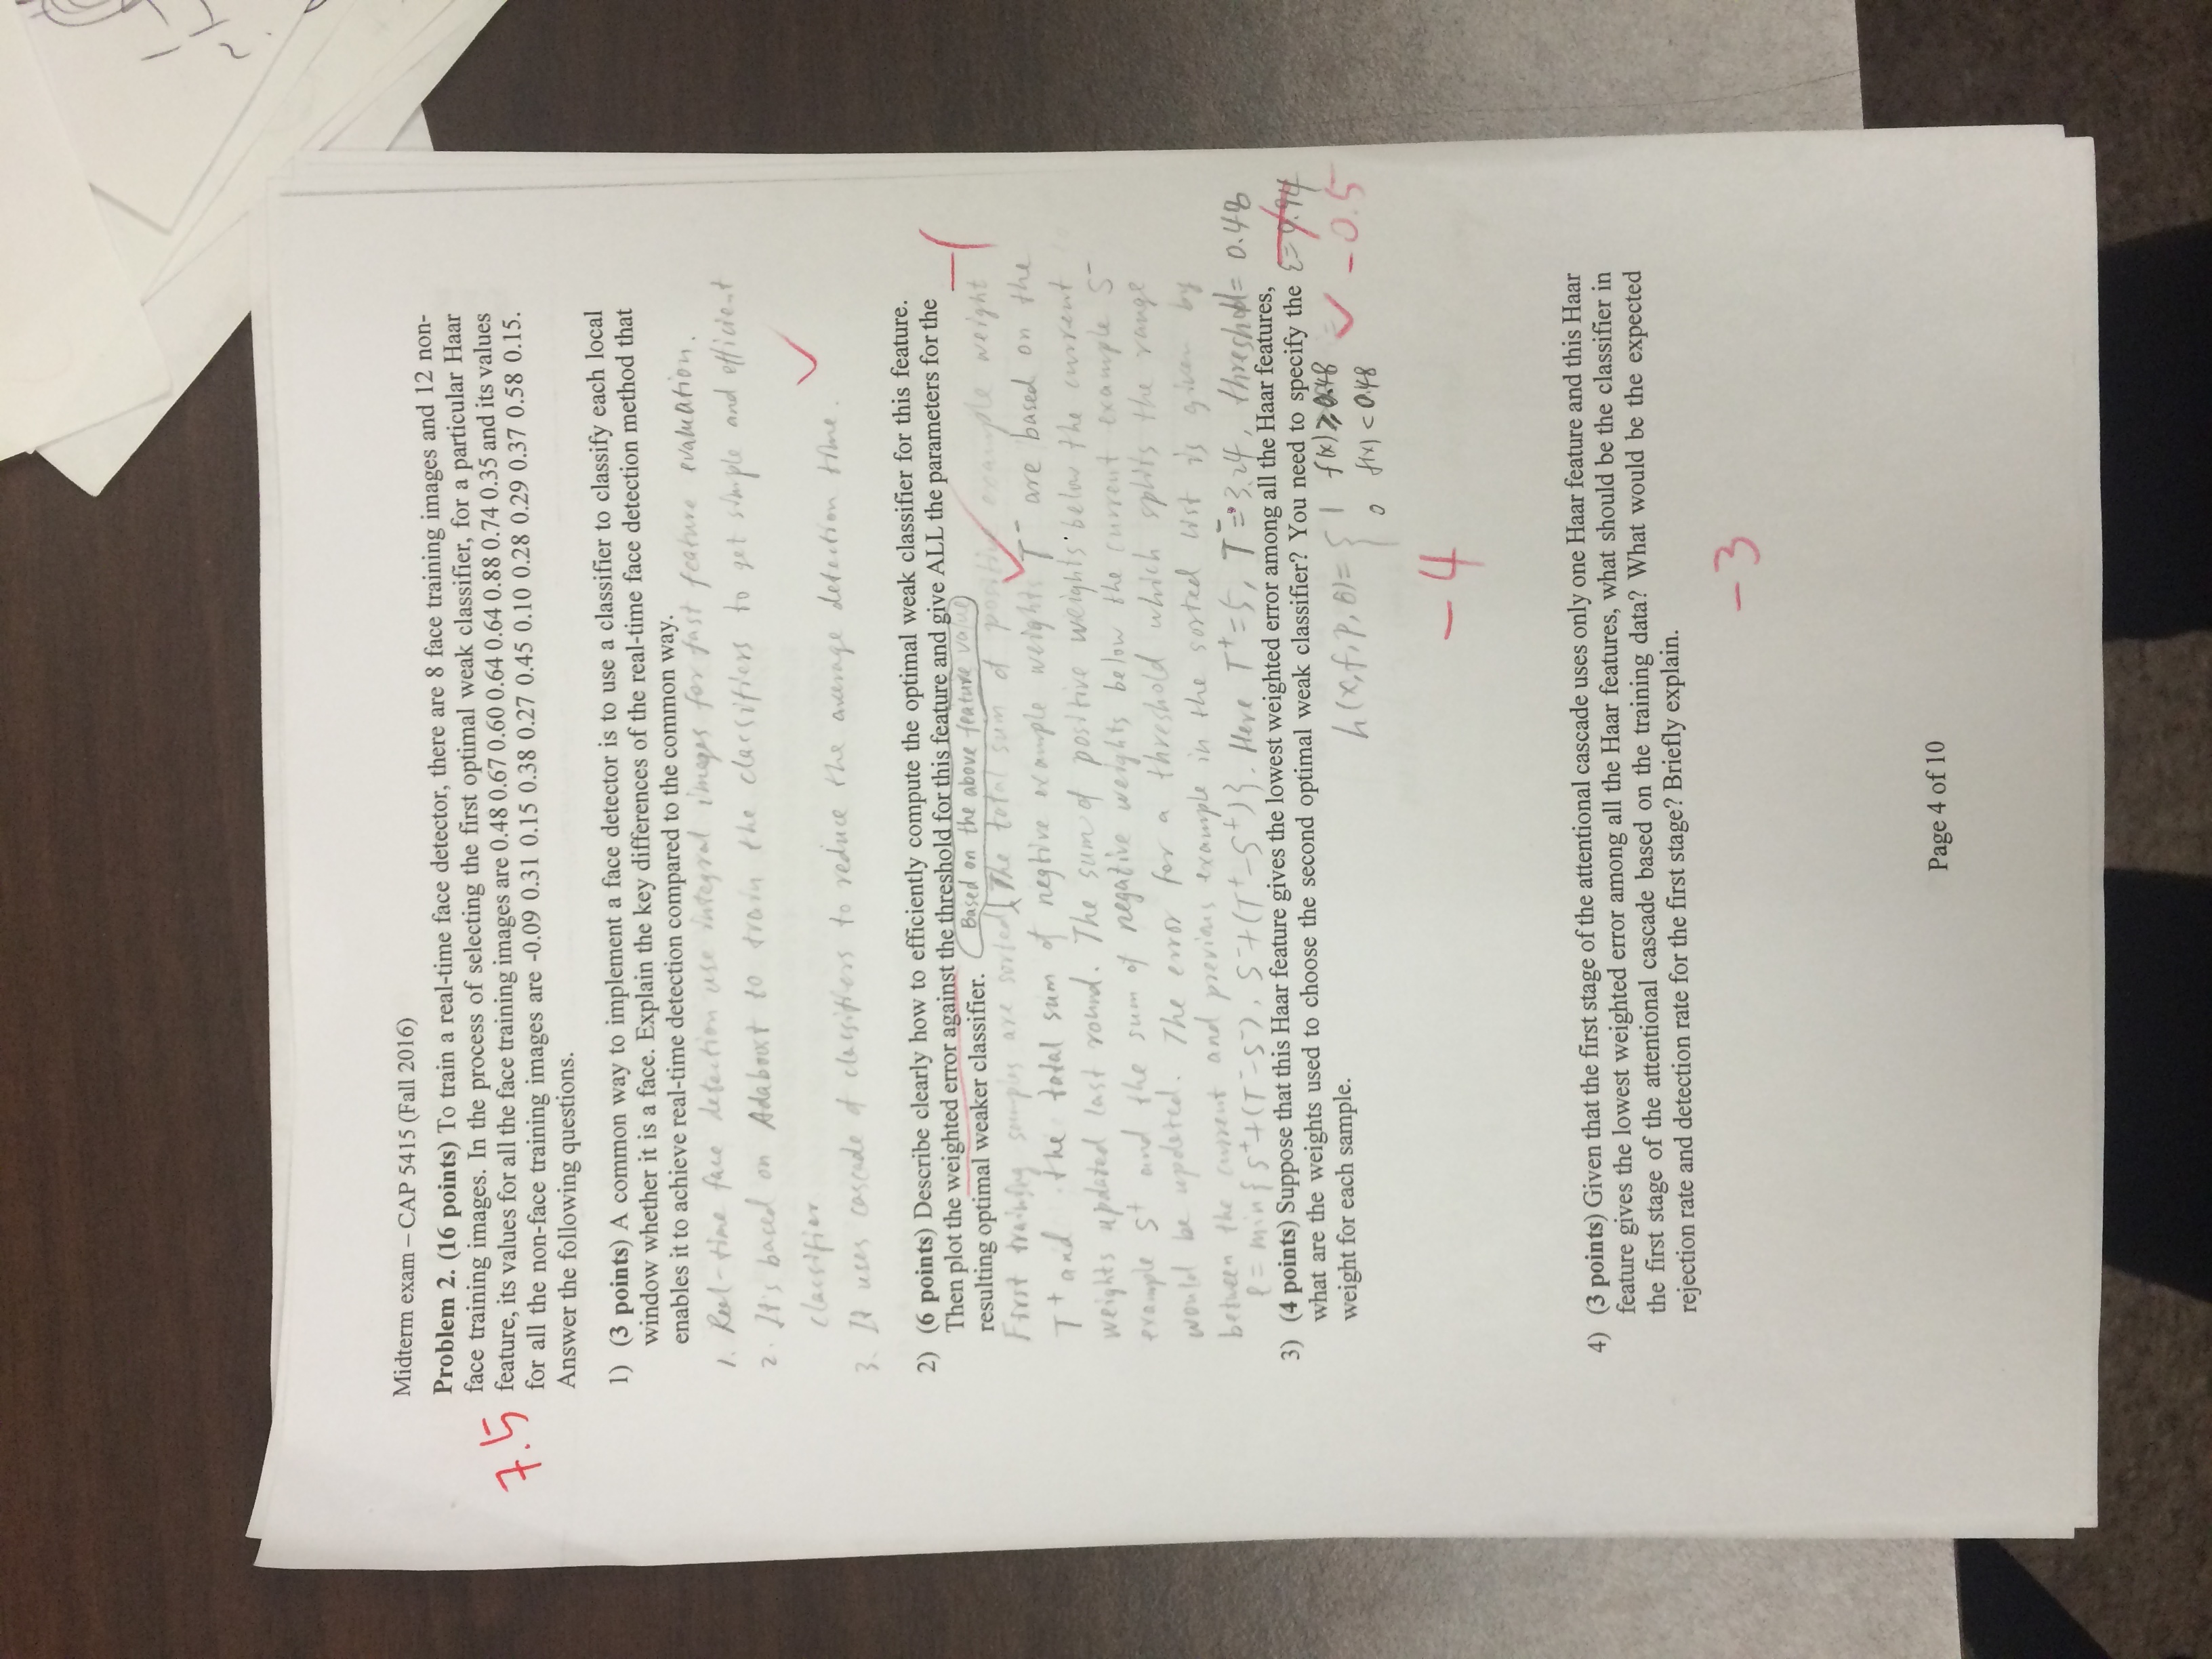 Midterm exam – CAP 5415 (Fall 2016)
7.5
Problem 2. (16 points) To train a real-time face detector, there are 8 face training images and 12 non-
face training images. In the process of selecting the first optimal weak classifier, for a particular Haar
feature, its values for all the face training images are 0.48 0.67 0.60 0.64 0.64 0.88 0.74 0.35 and its values
for all the non-face training images are -0.09 0.31 0.15 0.38 0.27 0.45 0.10 0.28 0.29 0.37 0.58 0.15.
Answer the following questions.
1) (3 points) A common way to implement a face detector is to use a classifier to classify each local
window whether it is a face. Explain the key differences of the real-time face detection method that
enables it to achieve real-time detection compared to the common way.
1. Real-time face detection use integral images for fast feature evaluation.
2. It's based on Adaboost to train the classifiers to get simple and efficient
classifier
3. It uses cascade of classifiers to reduce the average detection time.
2) (6 points) Describe clearly how to efficiently compute the optimal weak classifier for this feature.
Then plot the weighted error against the threshold for this feature and give ALL the parameters for the
resulting optimal weaker classifier.
Based on the above feature value
-1
First training samples are sorted. The total sum of positive example weight
T+ and the total sum of negtive example weight T- are based on the
weights updated last round. The sum of positive weights below the current
example S+ and the sum of negative weights below the current example S-
would be updated. The error for a threshold which splits the range
between the current and previous example in the sorted list is given by
e = min{S+ + (T- - S-), S- + (T+ - S+)}. Here T+ = 5, T- = 3.24, threshold = 0.48
3) (4 points) Suppose that this Haar feature gives the lowest weighted error among all the Haar features,
what are the weights used to choose the second optimal weak classifier? You need to specify the
weight for each sample.
ε=0.94
h(x,f,p,θ) = { 1 f(x) ≥ 0.48
0 f(x) < 0.48
-0.5
-4
4) (3 points) Given that the first stage of the attentional cascade uses only one Haar feature and this Haar
feature gives the lowest weighted error among all the Haar features, what should be the classifier in
the first stage of the attentional cascade based on the training data? What would be the expected
rejection rate and detection rate for the first stage? Briefly explain.
-3
Page 4 of 10